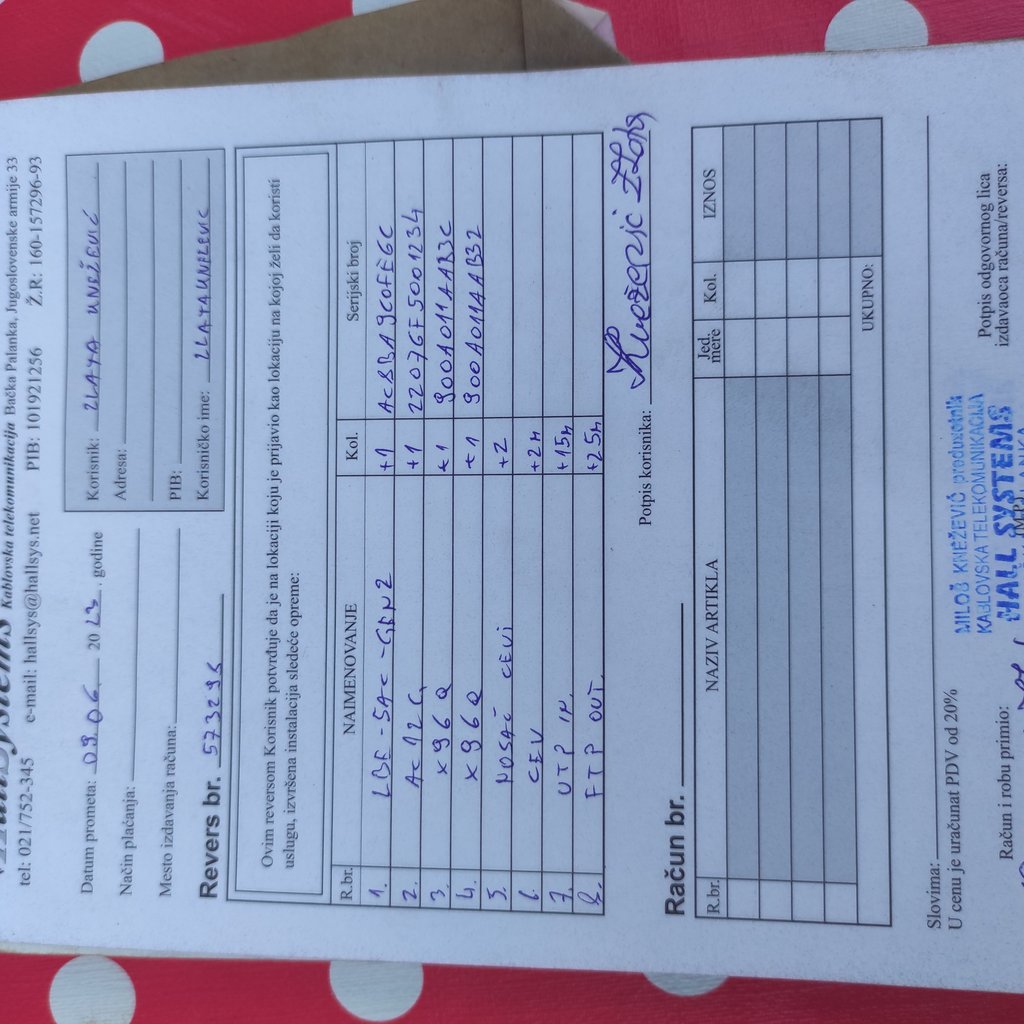 Kablovska telekomunikacija Bačka Palanka, Jugoslovenske armije 33
tel: 021/752-345 e-mail: hallsys@hallsys.net PIB: 101921256 Ž.R: 160-157296-93
Datum prometa: 09.06. 2023. godine
Način plaćanja:
Mesto izdavanja računa:
Korisnik: ZLATA KNEŽEVIĆ
Adresa:
PIB:
Korisničko ime: ZLATAKNEZEVIC
Revers br. 573296
Ovim reversom Korisnik potvrđuje da je na lokaciji koju je prijavio kao lokaciju na kojoj želi da koristi
uslugu, izvršena instalacija sledeće opreme:
R.br. NAIMENOVANJE Kol. Serijski broj
1. LBE-5AC-GEN2 +1 AC8BA9C0FE6C
2. AC12G +1 22076F5001234
3. X96Q +1 900A011AAB3C
4. X96Q +1 900A011AAB32
5. NOSAČ CEVI +2
6. CEV +2m
7. UTP IN +15m
8. FTP OUT +25m
Potpis korisnika: Knežević Zlata
Račun br.
R.br. NAZIV ARTIKLA Jed. mere Kol. IZNOS
UKUPNO:
Slovima:
U cenu je uračunat PDV od 20%
MILOŠ KNEŽEVIĆ preduzetnik
KABLOVSKA TELEKOMUNIKACIJA
HALL SYSTEMS
Račun i robu primio:
(M.P.)
Potpis odgovornog lica
izdavaoca računa/reversa: